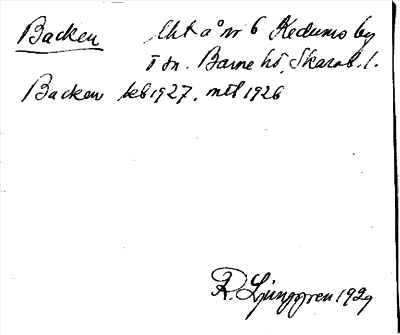 Backen Uht å nr 6 Kedums by
T sn. Barne hd, Skarab. l.
Backen kb 1927, mtl 1926
R. Ljunggren 1929